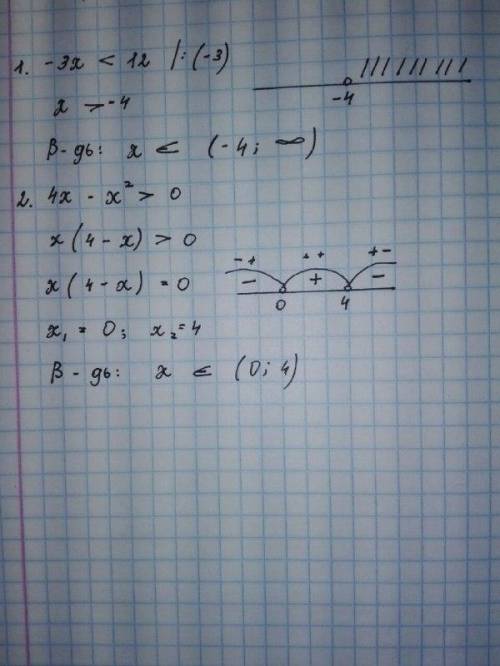 1. -3x < 12 |:(-3)
x > -4
-4
В-дь: x ∈ (-4; ∞)
2. 4x - x² > 0
x(4-x) > 0
x(4-x) = 0
- + + + + -
- + -
0 4
x₁ = 0; x₂ = 4
В-дь: x ∈ (0; 4)